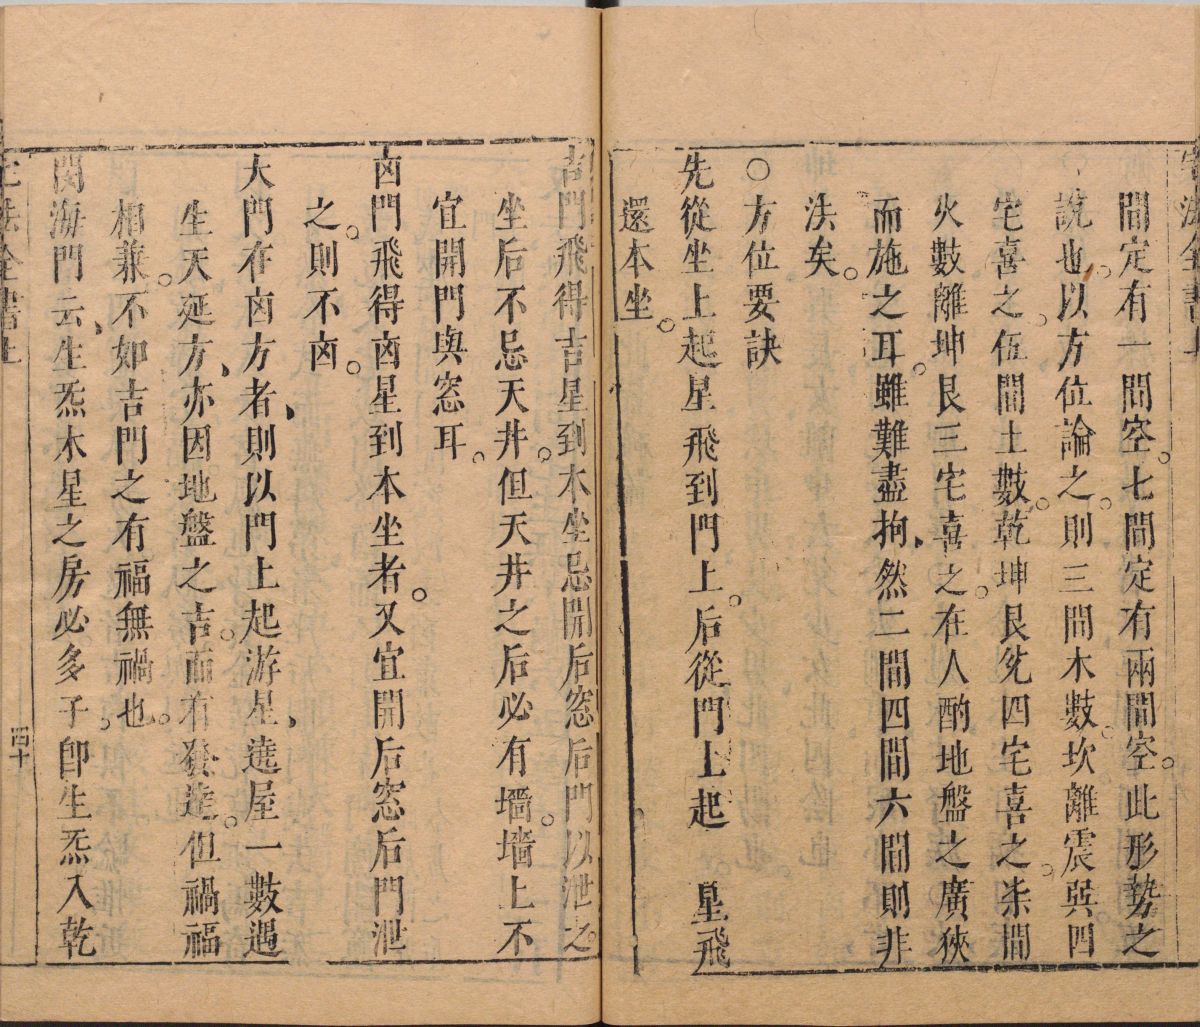 間定有一間空。七間定有兩間空。此形勢之
說也。以方位論之。則三間木數。坎離震巽四
宅喜之。伍間土數。乾坤艮兊四宅喜之。柒間
火數離坤艮三宅喜之。在人酌地盤之廣狹
而施之耳。雖難盡拘、然二間四間六間則非
法矣。
○方位要訣
先從坐上起星飛到門上。后從門上起 星飛
還本坐。
吉門飛得吉星到本坐忌開后窓后門以泄之。
坐后不忌天井。但天井之后必有墻。墻上不
宜開門與窓耳。
卤門飛得卤星到本坐者。又宜開后窓后門泄
之。則不卤。
大門在卤方者、則以門上起游星、遶屋一數遇
生天延方、亦因地盤之吉。而有發達。但禍福
相兼。不如吉門之有福無禍也。
関海門云、生炁木星之房必多子。卽生炁入乾
四十